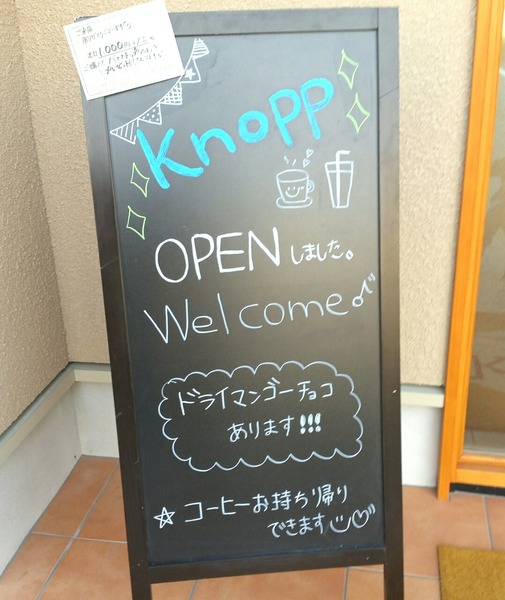 ご来店
1,000円以上
Knopp
OPENしました。
Welcome
ドライマンゴーチョコ
あります!!!
☆コーヒーお持ち帰り
できます